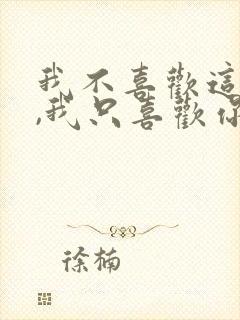 我不喜歡這
,我只喜歡你
徐楠